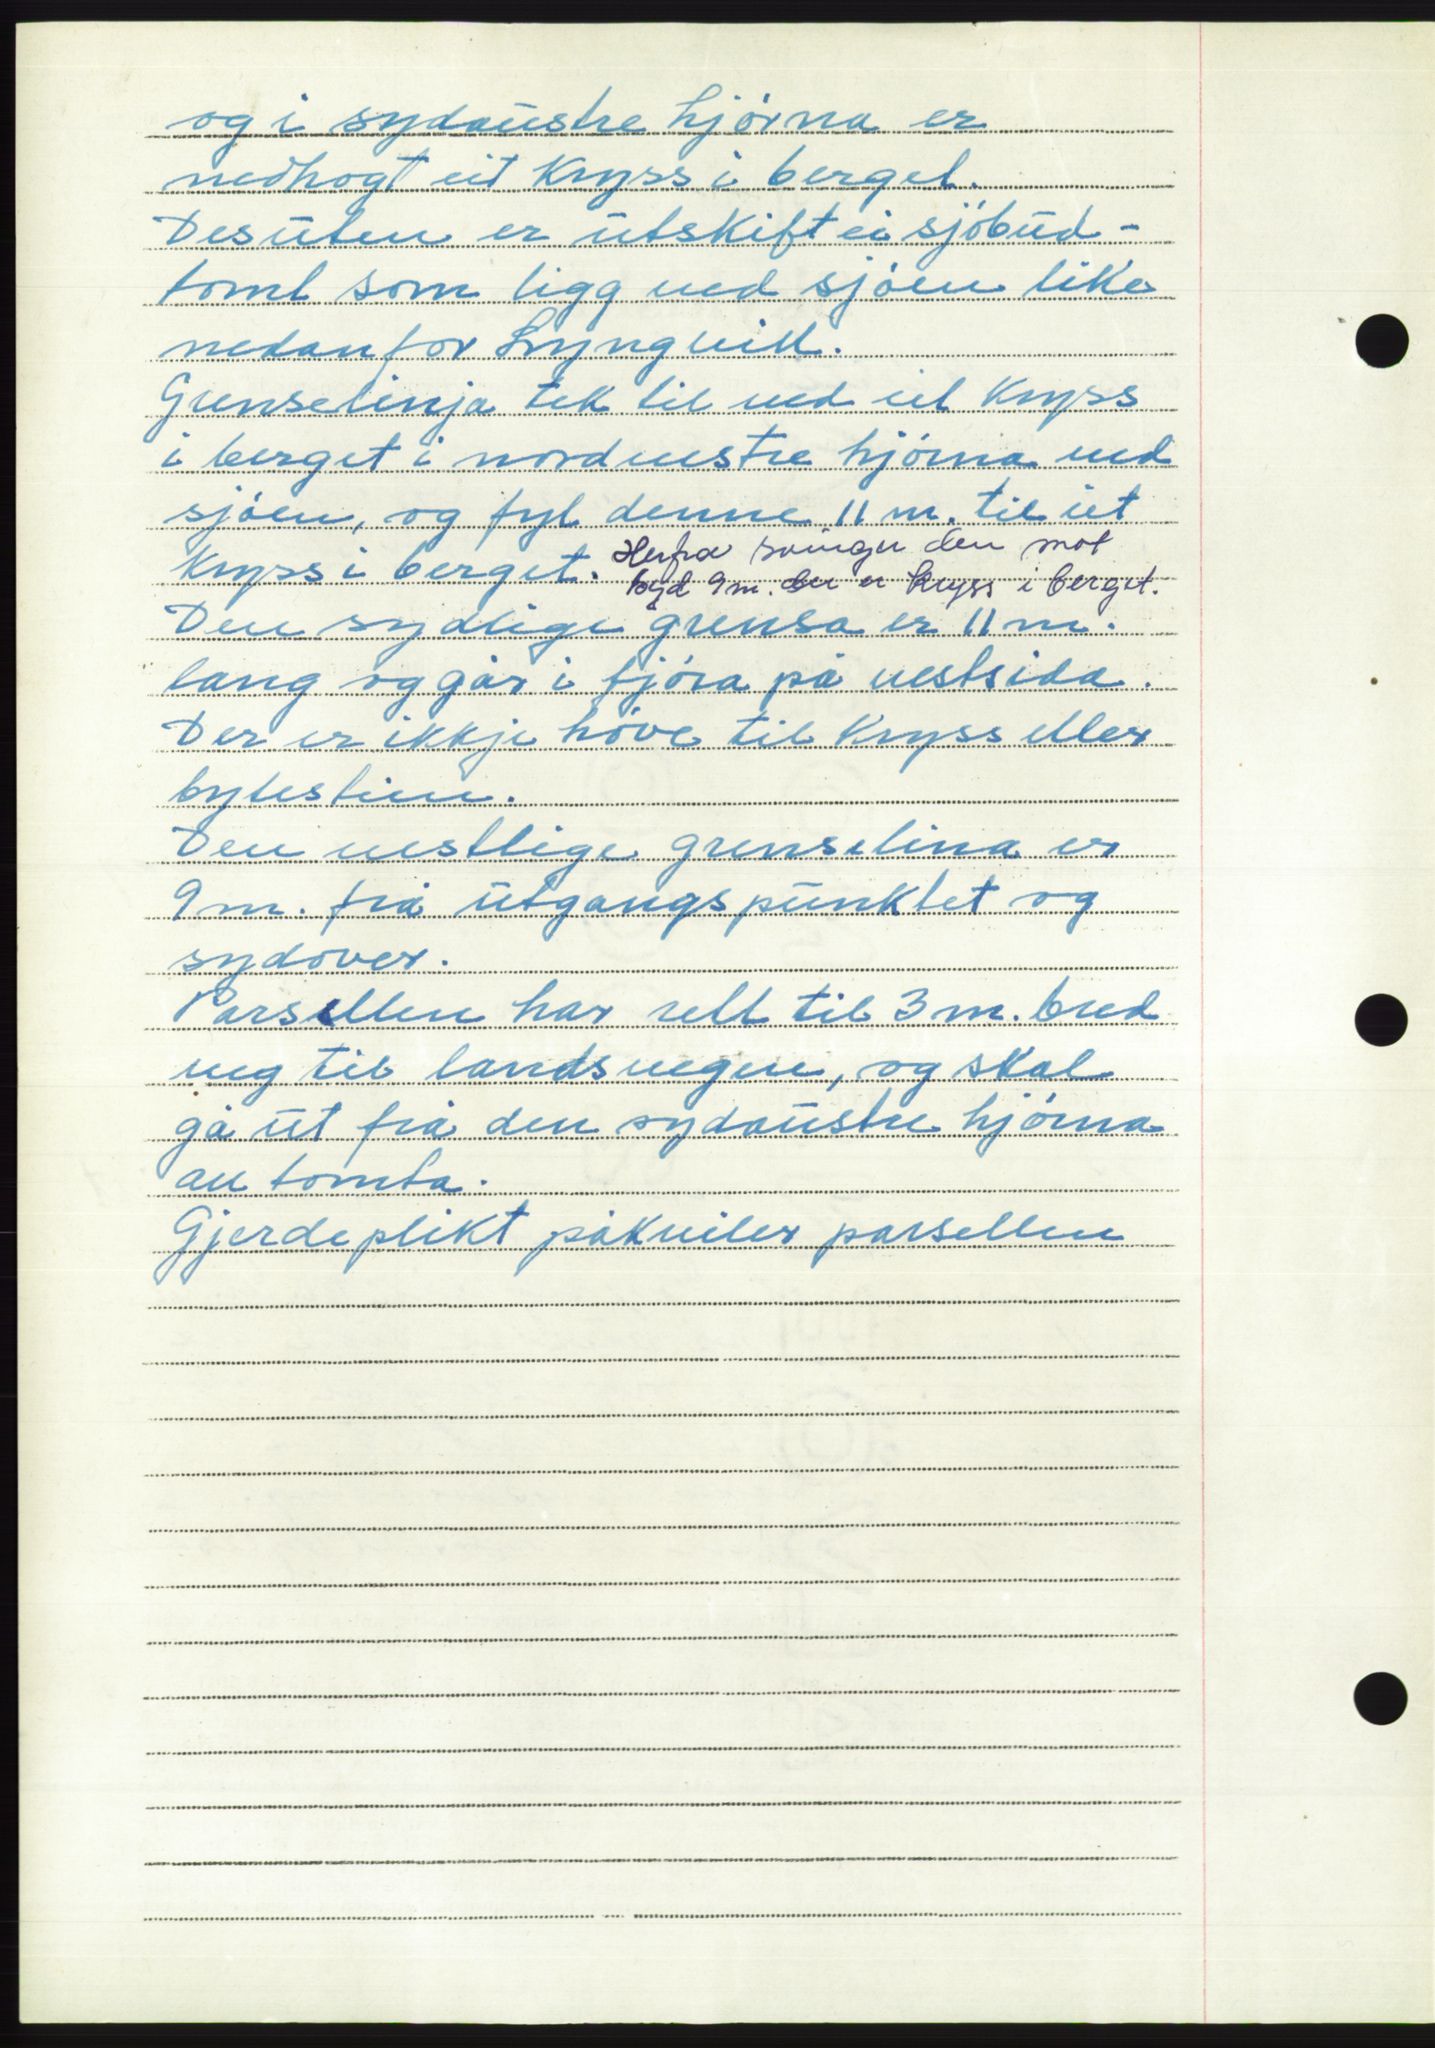 og i sydaustre hjörna er
nedhogt eit Kryss i berget.
Desuten er utskift ei sjöbud-
tomt som ligg ved sjöen like
nedanfor Lyngvik.
Grenselinja tek til ved eit Kryss
i berget i nordvestre hjörna ved
sjöen, og fyl denne 11 m. til eit
Kryss i berget. Herfra svinger den mot
syd 9 m. der er kryss i berget.
Den sydlige grensa er 11 m.
lang og går i fjöra på vestsida.
Der er ikkje höve til Kryss eller
bytestein.
Den vestlige grenselina er
9 m. frå utgangspunktet og
sydover.
Parsellen har rett til 3 m. bred
veg til landsvegen, og skal
gå ut frå den sydaustre hjörna
av tomta.
Gjerdeplikt påkviler parsellen